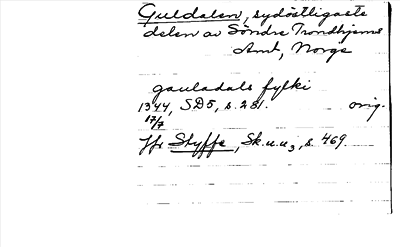 Guldalen, sydöstligaste
delen av Söndre Trondhjems
Amt, Norge
gauladals fylki
1344, SD5, s. 281. orig.
17/7
Jfr Styffe, Sk.u.u3, s. 469.